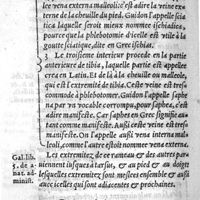 lee vena externa malleolic' est adire la veine externe
de la cheuille du pied. Guidon l'appelle scia
tica laquelle seroit mieux nommee ischiadice,
pource que la phlebotomie d'icelle est vtile à la
goutte sciatique, dite en Grec ischias.
Le troisieme interieur procede en la partie
anterieure de tibia, laquelle partie est appellee
crea en Latin. Et de là à la cheuille ou malleole,
qui est l'extremité de tibia. Ceste veine est tres
commode à phlebotomer. Guidon l'appelle saphe
na par vn vocable corrompu, pour saphes, c'est à
dire manifeste. Car saphes en Grec signifie autant
comme manifeste. Aussi ceste veine est tres
manifeste. On l'appelle aussi vena interna malleoli,
comme l'autre estoit nommee vena externe.
Les extremitez de ce rameau & des autres par
uiennent iusques à tarsus, & au pied & au doigts
lesquelles extremitez sont meslees ensemble & aussi
auec icelles qui sont adiacentes & prochaines.
Gal. lib.
3. de a-
nat. ad-
minist.